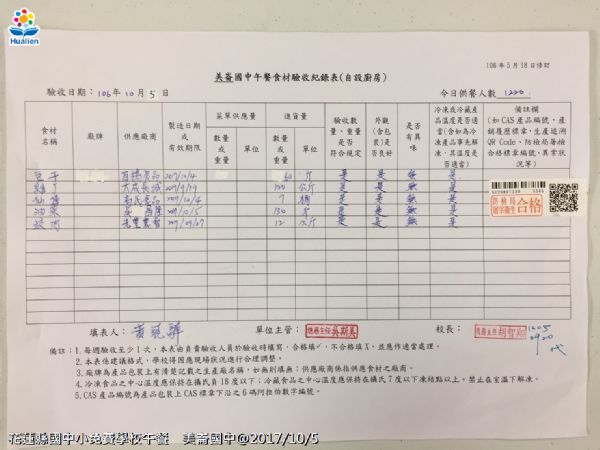 Hualien
106 年 5 月 18 日修訂
美崙國中午餐食材驗收紀錄表(自設廚房)
驗收日期： 106 年 10 月 5 日 今日供餐人數 1200
食材名稱 廠牌 供應廠商 製造日期或有效期限 菜單供應量 進貨量 驗收數量、重量是否符合規定 外觀(含包裝)是否良好 是否有異味 冷凍或冷藏產品溫度是否適當(含如為冷凍產品事先解凍，其溫度是否適當) 備註欄(如 CAS 產品編號、產銷履歷標章、生產追溯 QR Code、防檢局屠檢合格標章編號、異常狀況等)
數量或重量 單位 數量或重量 單位
豆干 百穗食品 2017/10/4 60 斤 是 是 無 是
雞丁 大成長城 公斤 是 是 無 是
2017/10/4 7 桶 是 是 無 是
2017/10/5 130 斤 是 是 無 是
2017/09/27 12 公斤 是 是 無 是
防檢局
屠宰衛生 合格
填表人： 單位主管： 校長：
代
備註：1.每週驗收至少 1 次，本表由負責驗收人員於驗收時填寫，合格填✓，不合格填 X，並應作適當處理。
2.本表係建議格式，學校得因應現場狀況進行合理調整。
3.廠牌為產品包裝上有清楚記載之生產廠名稱，如無則填無；供應廠商係指供應食材之廠商。
4.冷凍食品之中心溫度應保持在攝氏負 18 度以下；冷藏食品之中心溫度應保持在攝氏 7 度以下凍結點以上。禁止在室溫下解凍。
5.CAS 產品編號為產品包裝上 CAS 標章下沿之 6 碼阿拉伯數字編號。
花蓮縣國中小免費學校午餐 美崙國中@2017/10/5